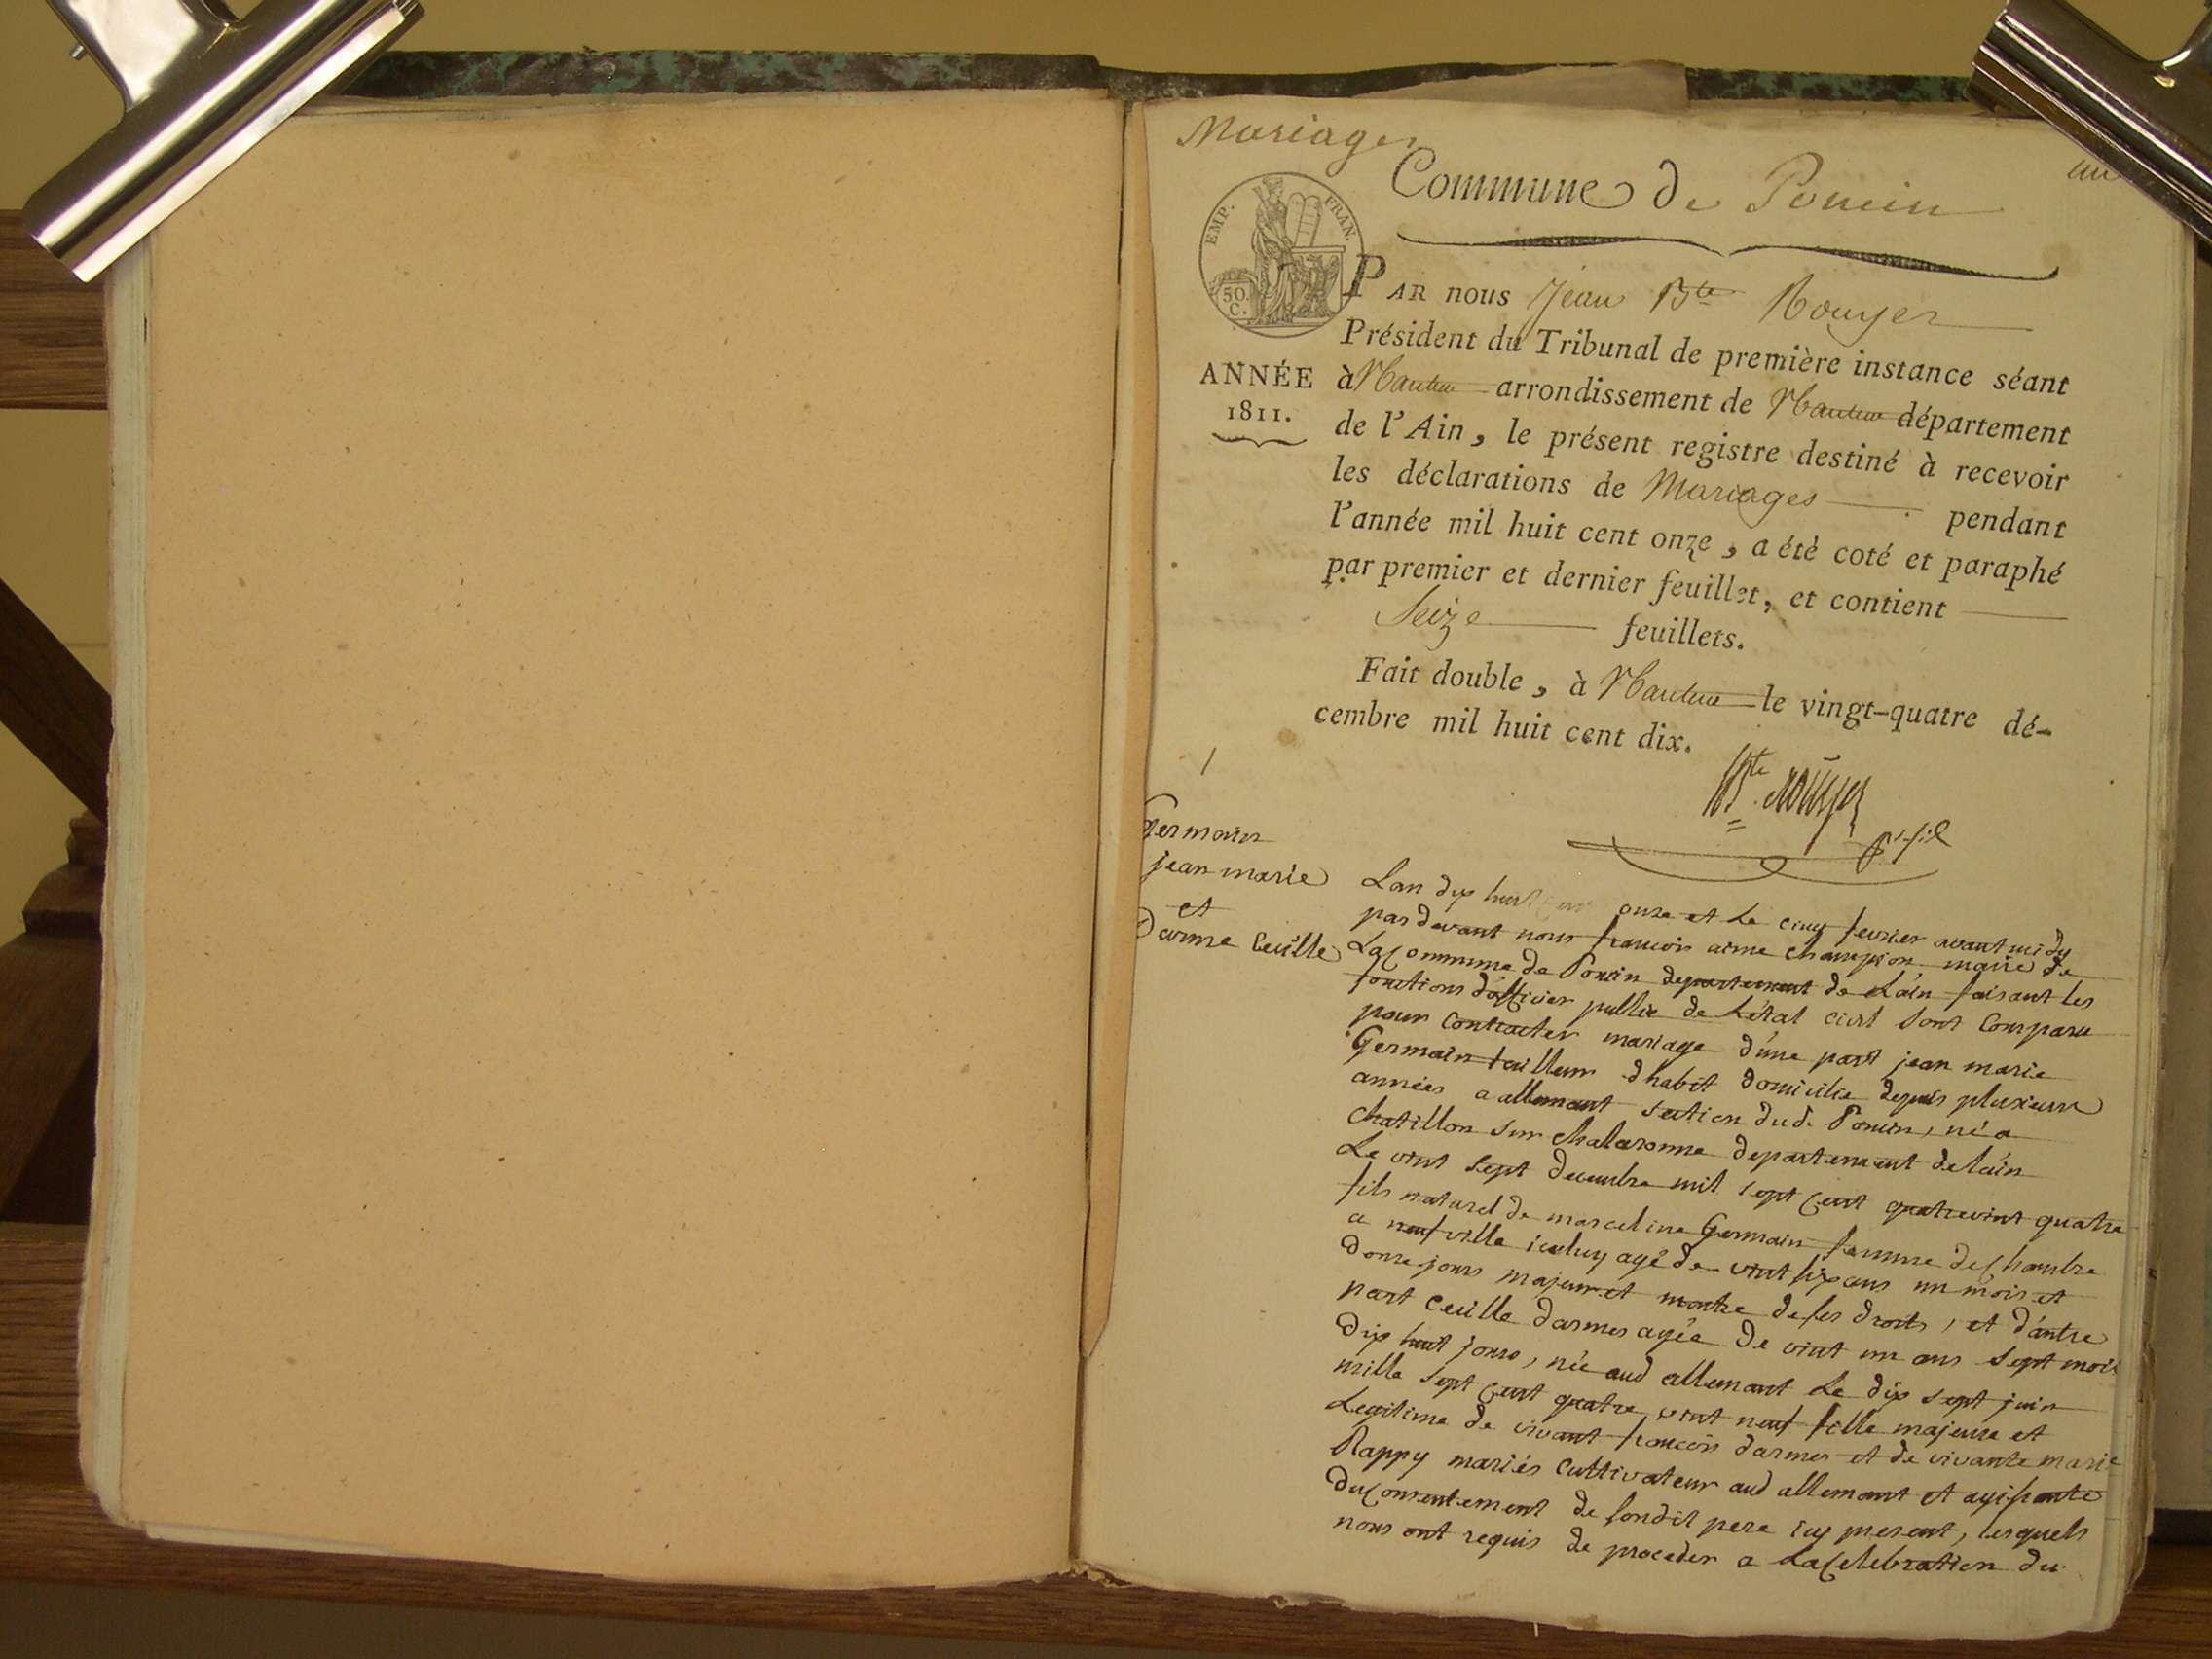 Mariages
un
Commune de Poncin
EMP. FRAN.
50 C.
ANNÉE
1811.
PAR nous Jean Bte Rouyer
Président du Tribunal de première instance séant
à Nantua arrondissement de Nantua département
de l'Ain, le présent registre destiné à recevoir
les déclarations de Mariages pendant
l'année mil huit cent onze, a été coté et paraphé
par premier et dernier feuillet, et contient
Seize feuillets.
Fait double, à Nantua le vingt-quatre dé-
cembre mil huit cent dix.
Bte Rouyer
1
Germain
jean marie
et
Darme Cecille
Lan dix huit cent onze et Le cinq fevrier avant midy
par devant nous francois aime Champion maire de
La Commune de Poncin departement de Lain faisant les
fonctions dofficier public de Létat civil sont Comparu
pour Contracter mariage d'une part jean marie
Germain tailleur dhabit domicilie depuis plusieurs
années a allemant section dud. Poncin, né a
Chatillon sur Chalaronne departement de lain
Le vint sept decembre mil sept cent quatrevint quatre
fils naturel de marceline Germain femme de Chambre
a neufville iceluy agé de vint six ans un mois et
douse jours majeur et maitre de ses droits, et d'autre
part Cecille darmes agée de vint un ans sept mois
dix huit jours, née aud allemant Le dix sept juin
mille sept cent quatre vint neuf fille majeure et
Legitime de vivant francois darmes et de vivante marie
Rappy mariés Cultivateur aud allemant et agissante
du Consentement de sondit pere icy present, lesquels
nous ont requis de proceder a La Celebration du